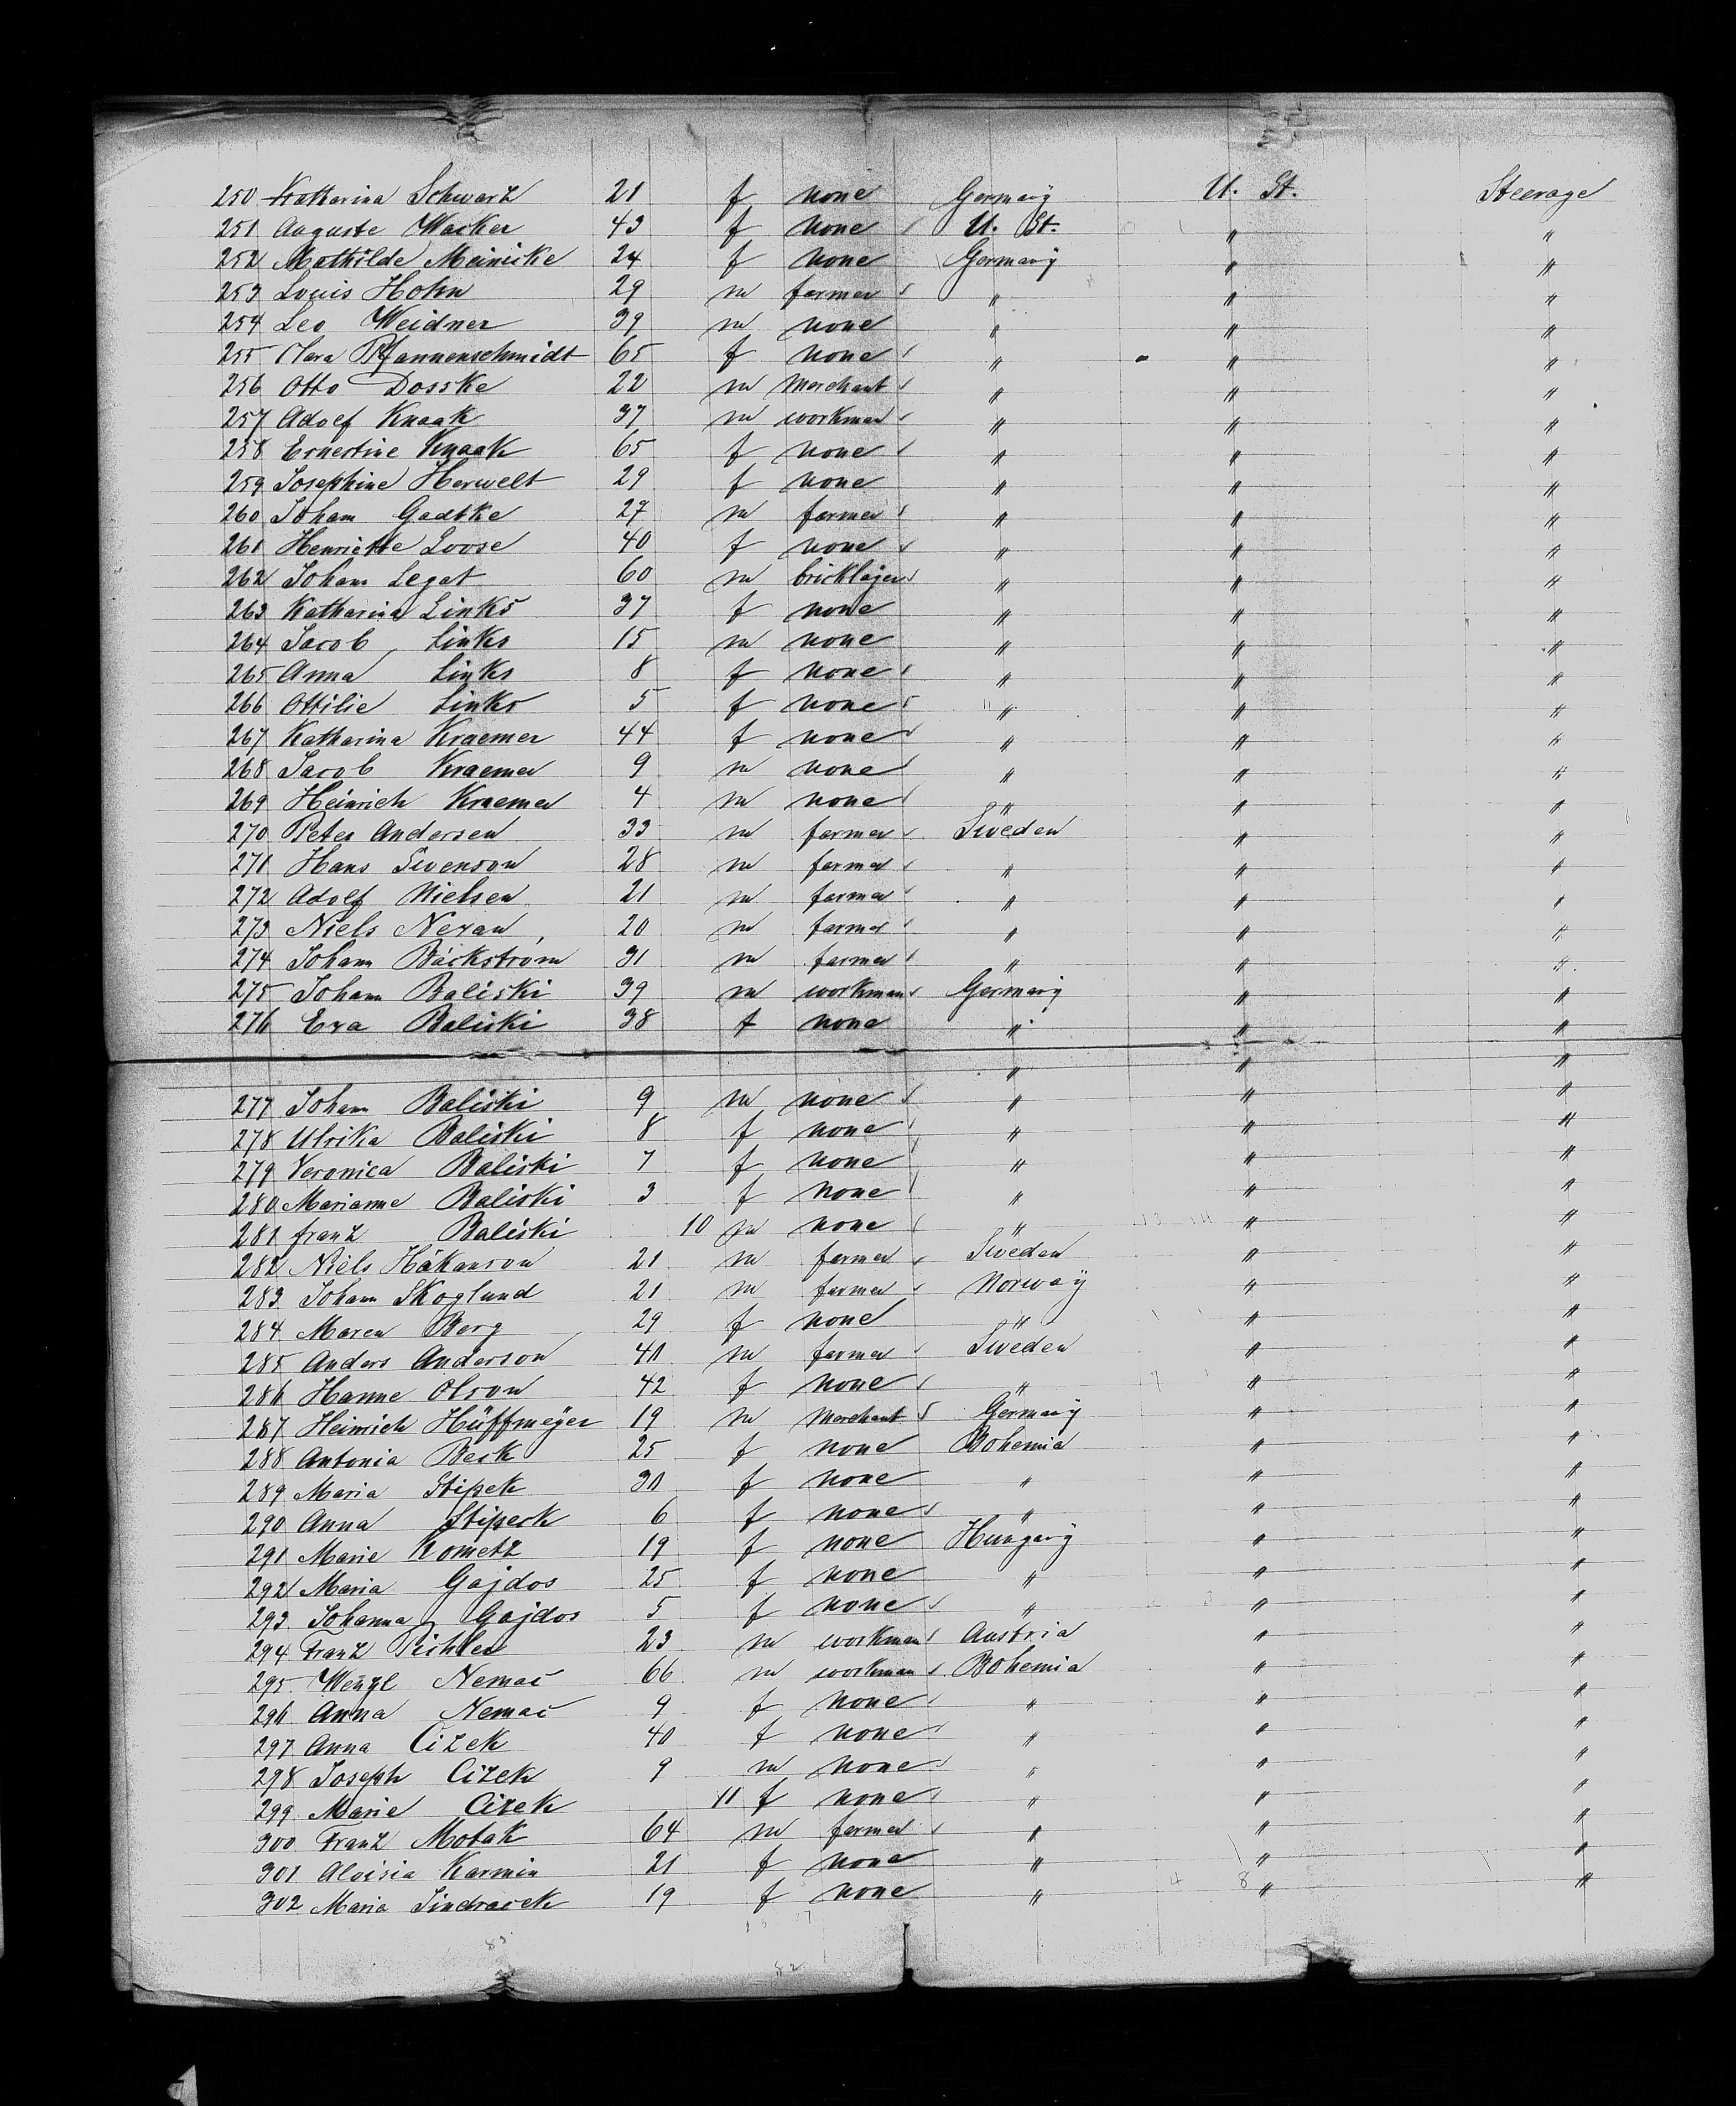 250 Katharina Schwarz 21 f none Germany U. St. Steerage
251 Auguste Wacker 43 f none U. St. " "
252 Mathilde Meinicke 24 f none Germany " "
253 Louis Hohn 29 m farmer " " "
254 Leo Weidner 39 m none " " "
255 Clara Pfannenschmidt 65 f none " " "
256 Otto Dosske 22 m merchant " " "
257 Adolf Knaak 37 m workman " " "
258 Ernestine Knaak 65 f none " " "
259 Josephine Herwelt 29 f none " " "
260 Johann Gadtke 27 m farmer " " "
261 Henriette Loose 40 f none " " "
262 Johann Legat 60 m bricklayer " " "
263 Katharina Links 37 f none " " "
264 Jacob Links 15 m none " " "
265 Anna Links 8 f none " " "
266 Ottilie Links 5 f none " " "
267 Katharina Kraemer 44 f none " " "
268 Jacob Kraemer 9 m none " " "
269 Heinrich Kraemer 4 m none " " "
270 Peter Andersen 33 m farmer Sweden " "
271 Hans Swenson 28 m farmer " " "
272 Adolf Nielsen 21 m farmer " " "
273 Niels Nexan 20 m farmer " " "
274 Johann Bäckstrom 31 m farmer " " "
275 Johann Baliski 39 m workman Germany " "
276 Eva Baliski 38 f none " " "
" " "
277 Johann Baliski 9 m none " " "
278 Ulrika Baliski 8 f none " " "
279 Veronica Baliski 7 f none " " "
280 Marianne Baliski 3 f none " " "
281 Franz Baliski 10 m none " " "
282 Niels Håkanson 21 m farmer Sweden " "
283 Johann Skoglund 21 m farmer Norway " "
284 Maren Berg 29 f none " " "
285 Anders Anderson 41 m farmer Sweden " "
286 Hanne Olson 42 f none " " "
287 Heinrich Hüffmeyer 19 m merchant Germany " "
288 Antonia Beck 25 f none Bohemia " "
289 Maria Stipek 31 f none " " "
290 Anna Stipeck 6 f none " " "
291 Marie Kometz 19 f none Hungary " "
292 Maria Gajdos 25 f none " " "
293 Johanna Gajdos 5 f none " " "
294 Franz Pichler 23 m workman Austria " "
295 Wenzl Nemac 66 m workman Bohemia " "
296 Anna Nemac 9 f none " " "
297 Anna Cizek 40 f none " " "
298 Joseph Cizek 9 m none " " "
299 Marie Cizek 11 f none " " "
300 Franz Motak 64 m farmer " " "
301 Aloisia Karmin 21 f none " " "
302 Maria Jindracek 19 f none " " "